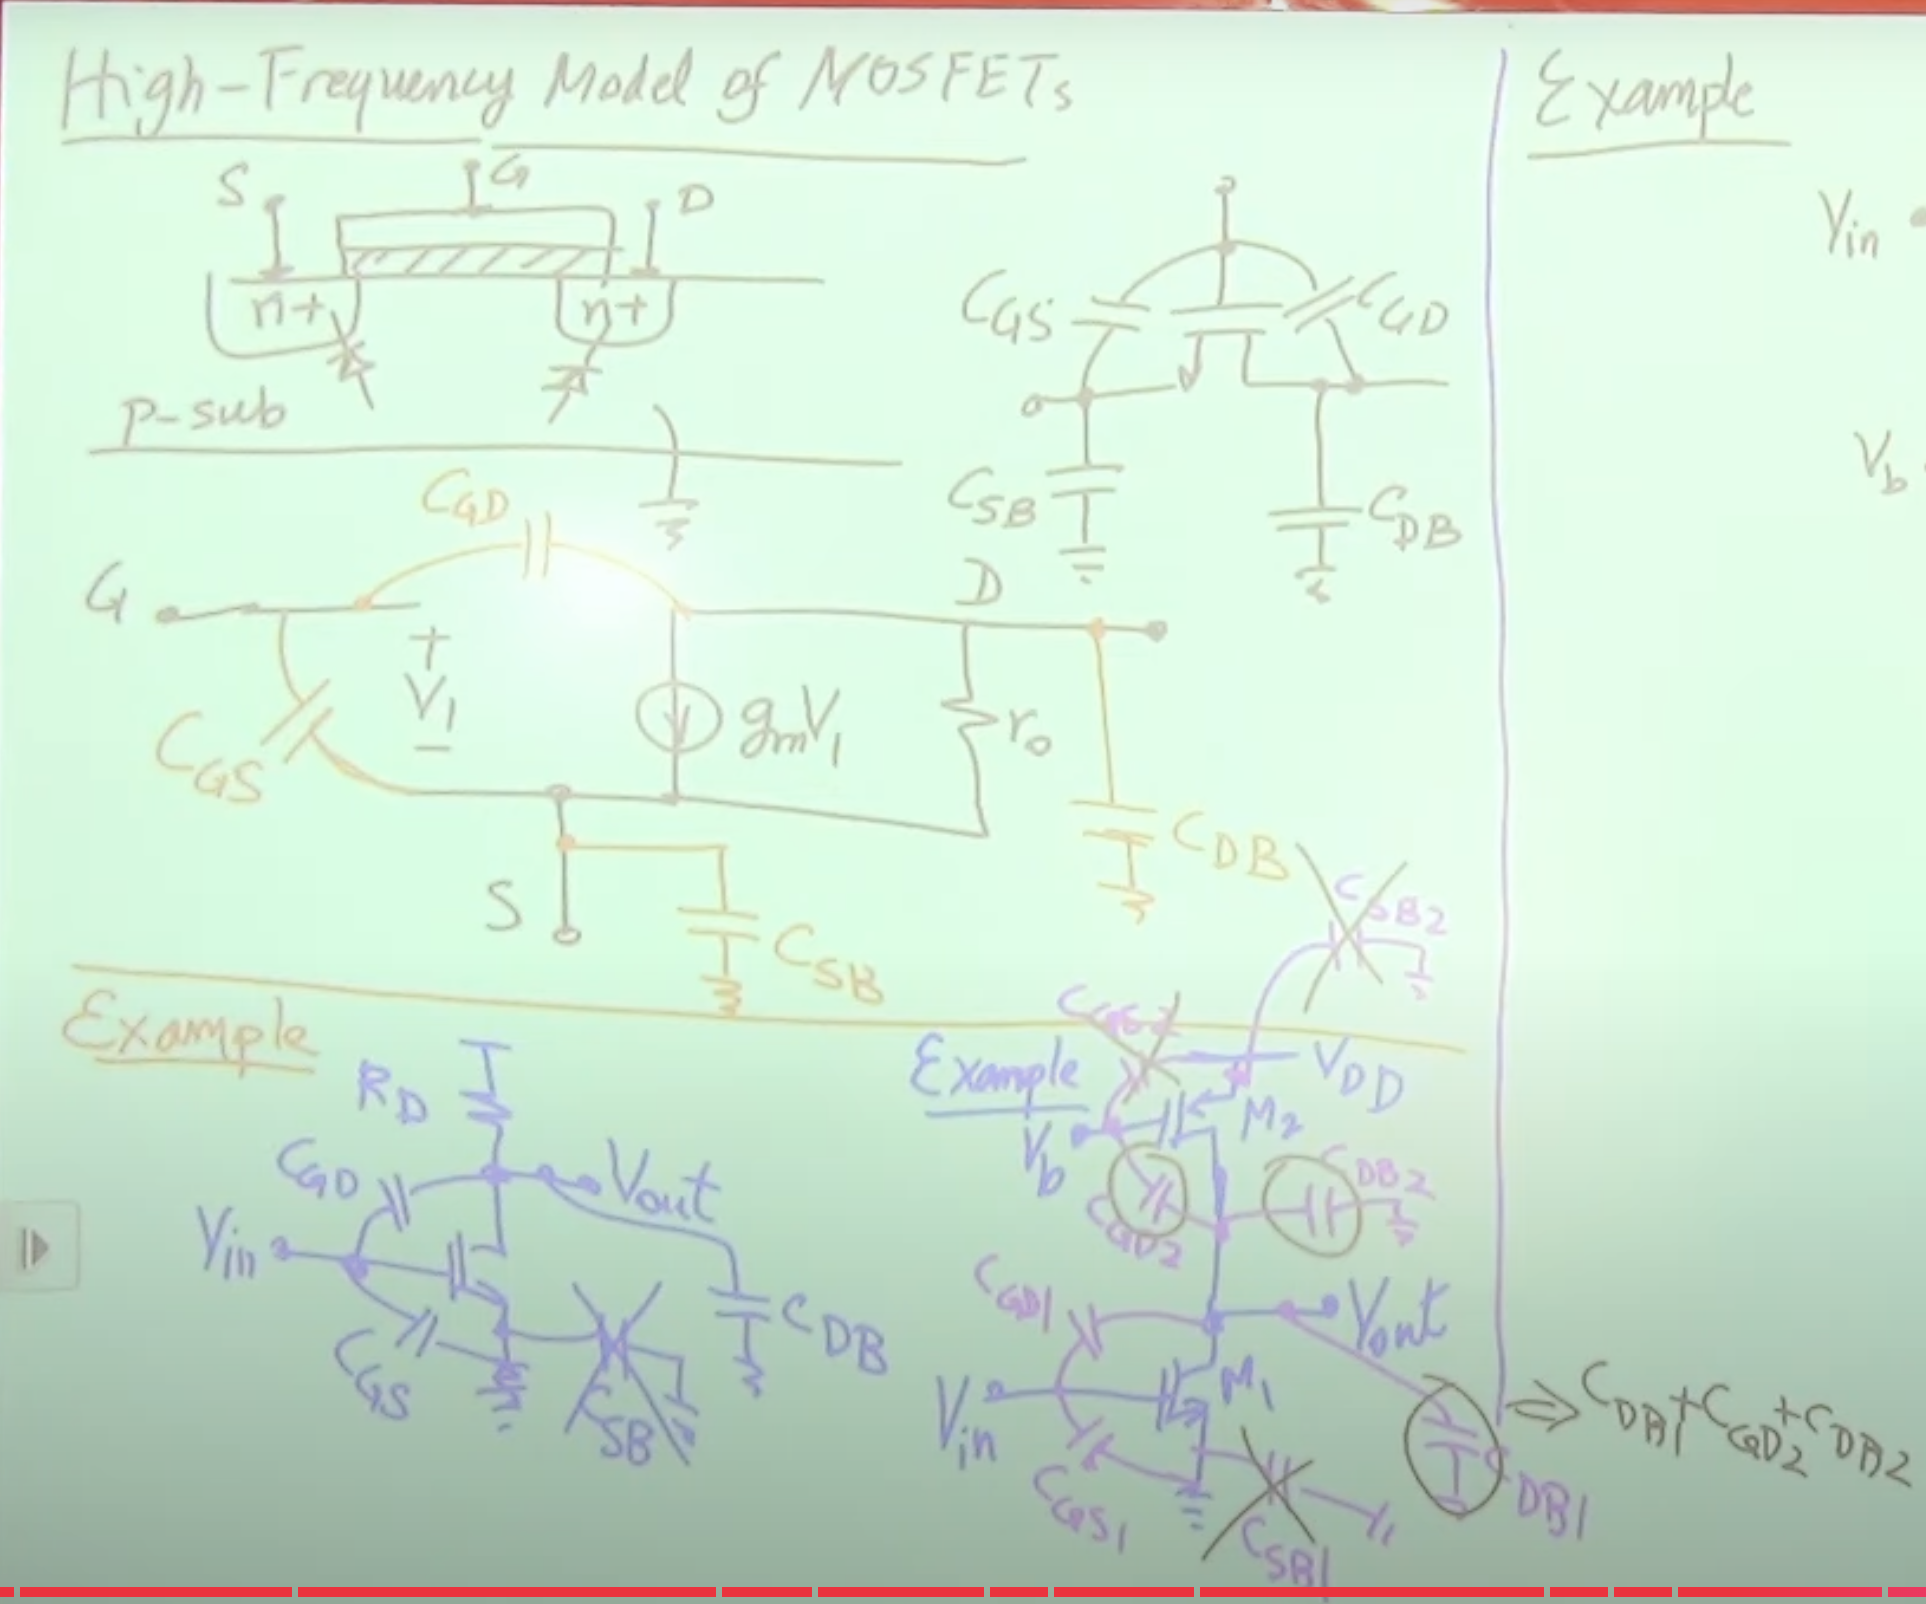 High-Frequency Model of MOSFETs
S
G
D
n+
n+
p-sub
CGS
CGD
CSB
CDB
CGD
G
D
+
V1
−
gmV1
ro
CGS
CDB
S
CSB
Example
RD
CGD
Vout
Vin
CGS
CSB
CDB
Example
CSB2
CGS2
VDD
M2
Vb
CGD2
CDB2
CGD1
Vout
Vin
M1
CGS1
CSB1
CDB1
⇒ CDB1+CGD2+CDB2
Example
Vin
Vb